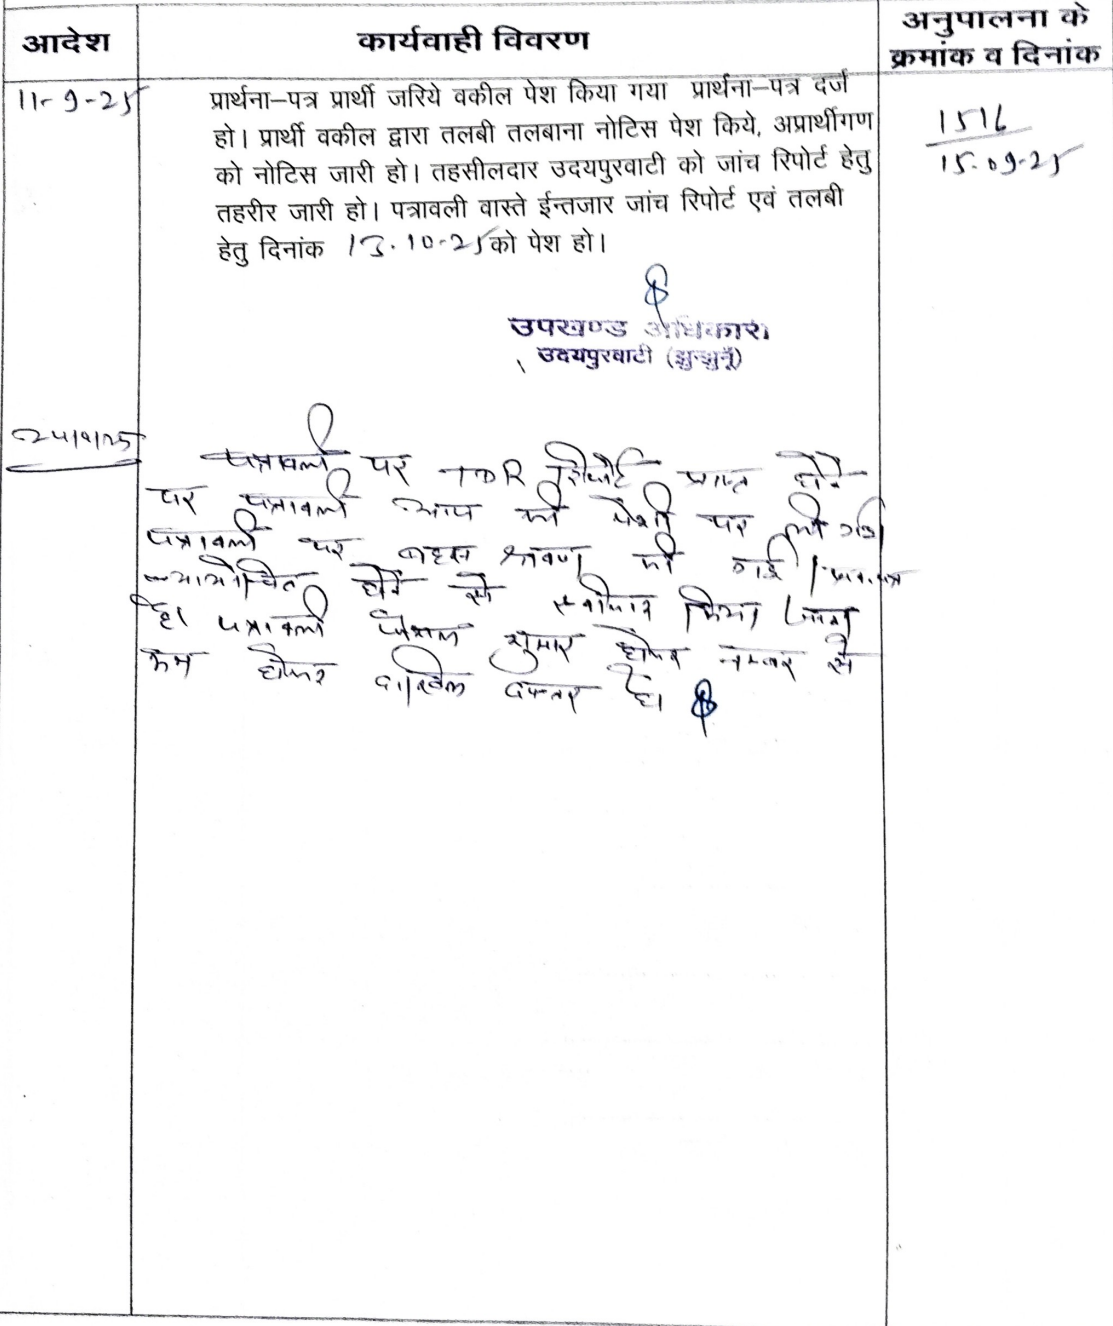 आदेश
कार्यवाही विवरण
अनुपालना के
क्रमांक व दिनांक
11-9-25
प्रार्थना–पत्र प्रार्थी जरिये वकील पेश किया गया प्रार्थना–पत्र दर्ज
हो। प्रार्थी वकील द्वारा तलबी तलबाना नोटिस पेश किये, अप्रार्थीगण
को नोटिस जारी हो। तहसीलदार उदयपुरवाटी को जांच रिपोर्ट हेतु
तहरीर जारी हो। पत्रावली वास्ते ईन्तजार जांच रिपोर्ट एवं तलबी
हेतु दिनांक 13.10-25 को पेश हो।
1516
15.09-25
उपखण्ड अधिकारी
उदयपुरवाटी (झुन्झुनूँ)
पत्रावली पर TDR रिपोर्ट प्राप्त होने
पर पत्रावली आज की पेशी पर ली गई
पत्रावली पर बहस श्रवण की गई।
न्यायोचित होने से स्वीकार किया जाता
है। पत्रावली फैसल शुमार होकर नम्बर से
कम होकर दाखिल दफ्तर हो।